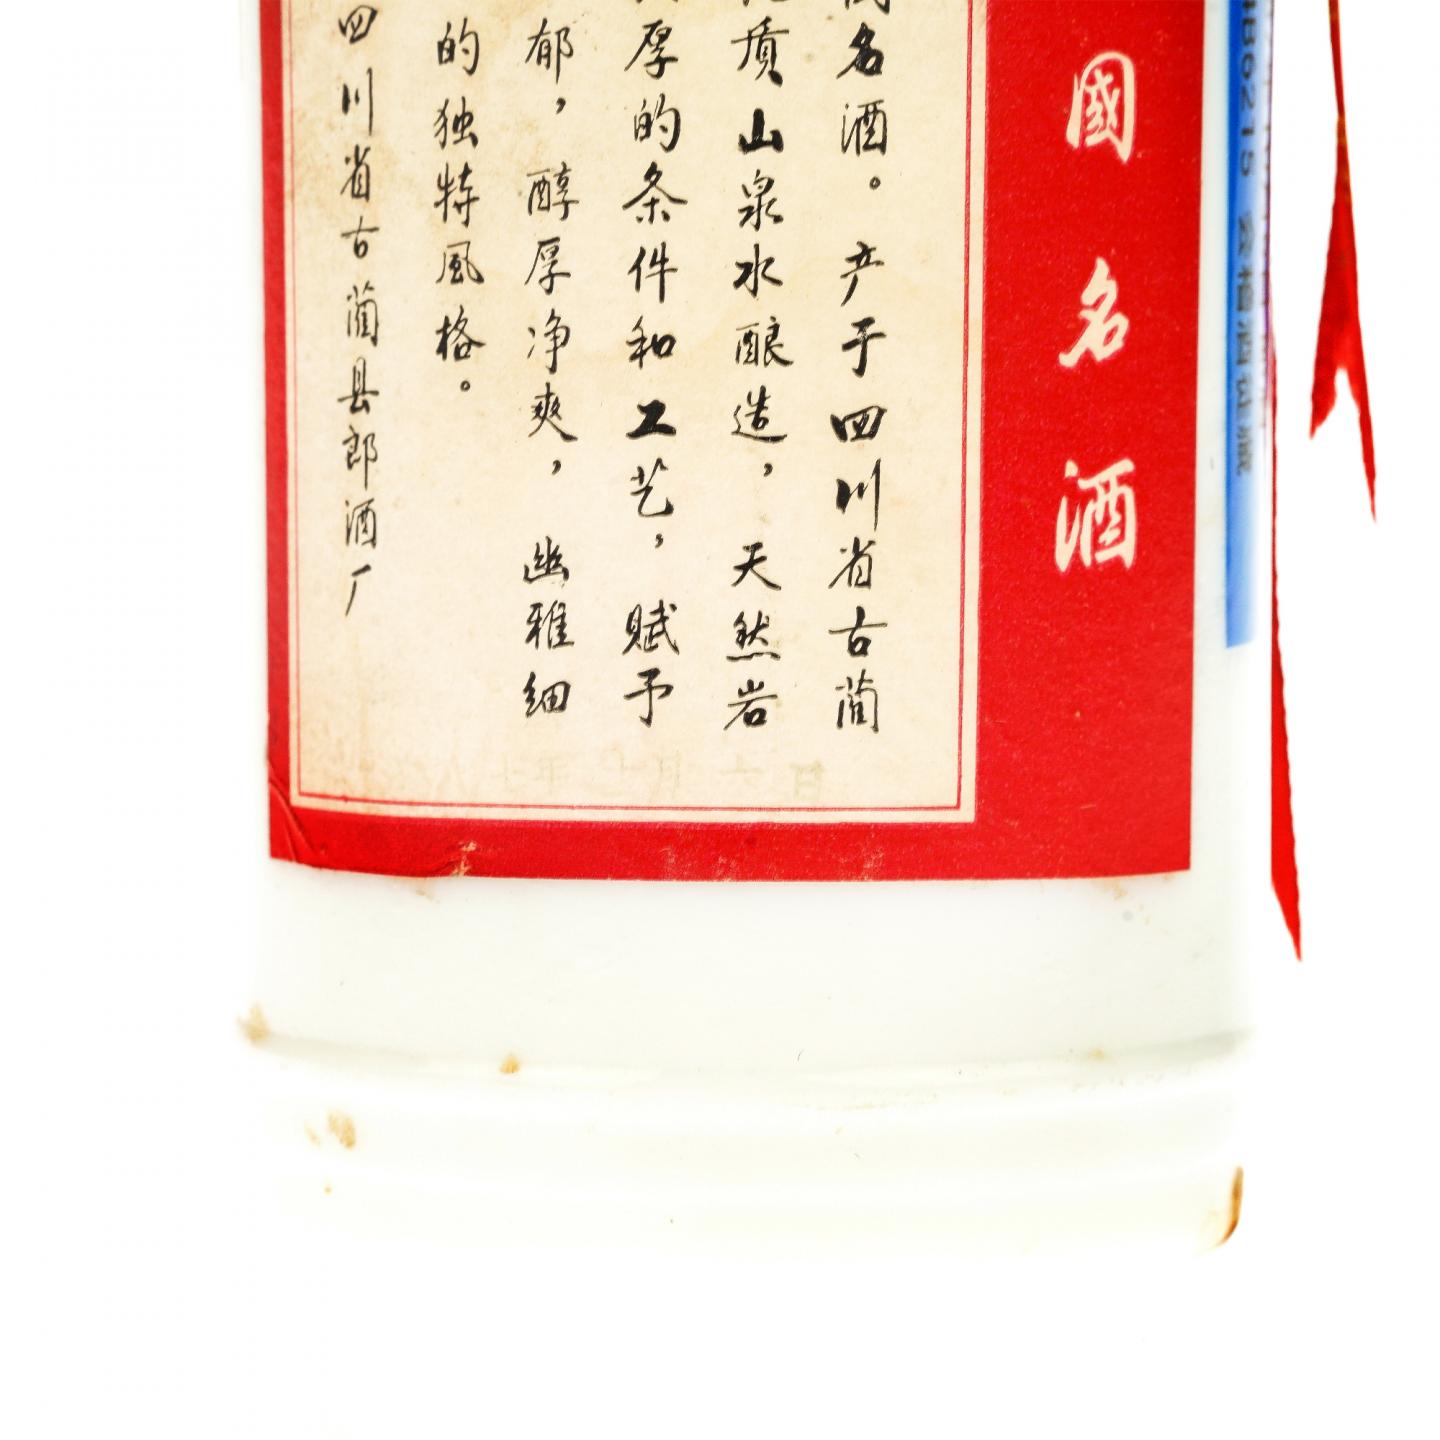 國名酒
名酒。产于四川省古蔺
质山泉水酿造，天然岩
厚的条件和工艺，赋予
郁，醇厚净爽，幽雅细
的独特风格。
四川省古蔺县郎酒厂